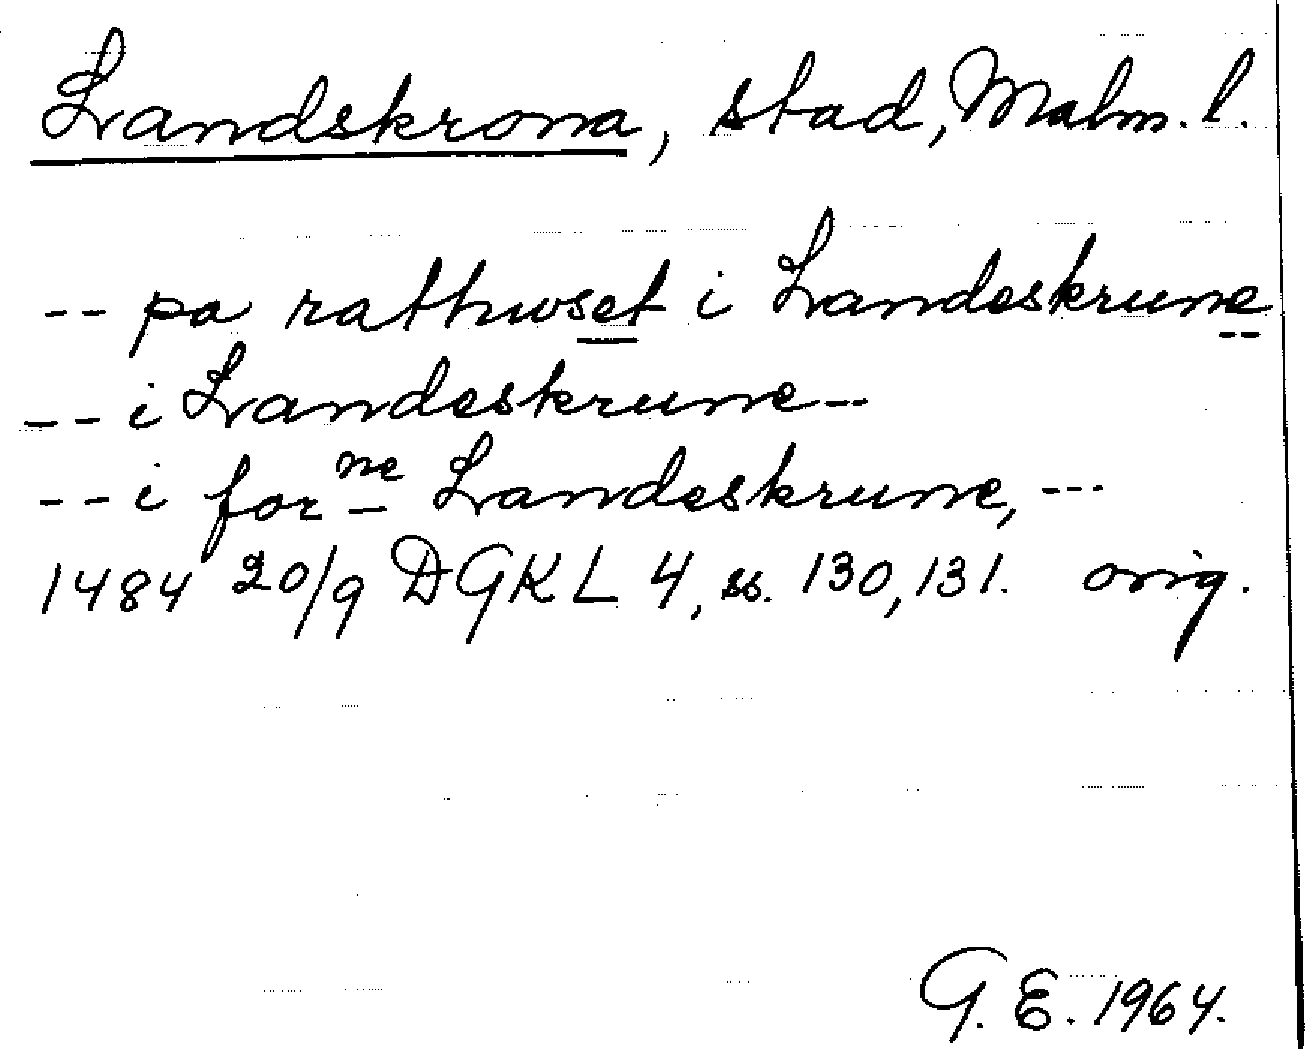 Landskrona, stad, Malm. l.
-- pa rathuset i Landeskrune
-- i Landeskrune --
-- i forne Landeskrune, ---
1484 20/9 DGKL 4, ss. 130, 131. orig.
G. E. 1964.